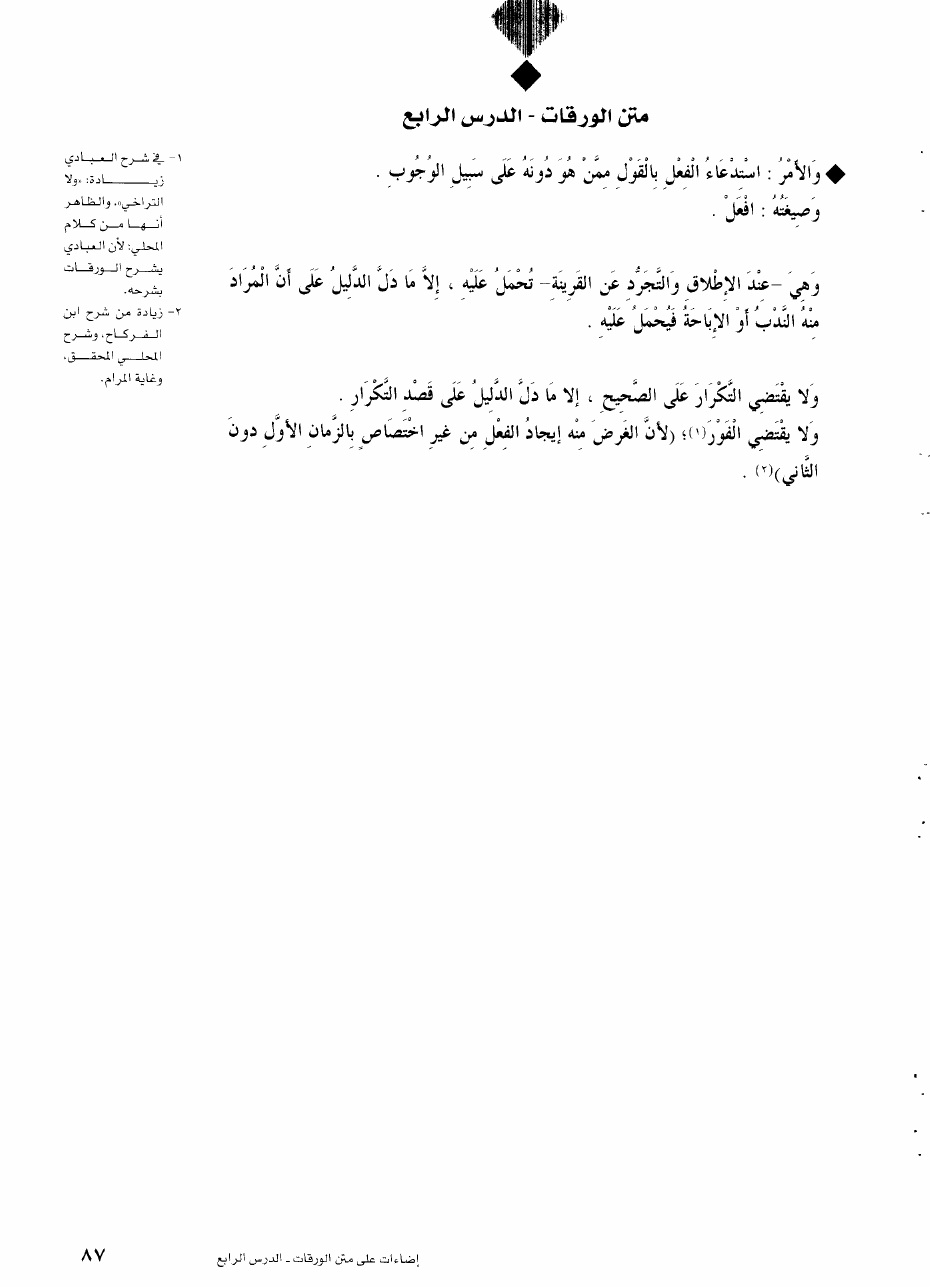 متن الورقات - الدرس الرابع
وَالأَمْرُ : اسْتِدْعَاءُ الْفِعْلِ بِالْقَوْلِ مِمَّنْ هُوَ دُونَهُ عَلَى سَبِيلِ الوُجُوبِ .
وَصِيغَتُهُ : افْعَلْ .
وَهِيَ -عِنْدَ الإِطْلاقِ وَالتَّجَرُّدِ عَنِ القَرِينَةِ- تُحْمَلُ عَلَيْهِ ، إِلاَّ مَا دَلَّ الدَّلِيلُ عَلَى أَنَّ الْمُرَادَ
مِنْهُ النَّدْبُ أَوْ الإِبَاحَةُ فَيُحْمَلُ عَلَيْهِ .
وَلا يقْتَضِي التَّكْرَارَ عَلَى الصَّحِيحِ ، إِلا مَا دَلَّ الدَّلِيلُ عَلَى قَصْدِ التَّكْرَارِ .
وَلا يقْتَضِي الْفَوْرَ(١)؛ (لأَنَّ الغَرضَ مِنْه إِيجادُ الفعْلِ مِن غيرِ اخْتِصَاصٍ بِالزَّمانِ الأوَّلِ دونَ
الثَّاني)(٢) .
١- في شرح العبادي
زيادة: «ولا
التراخي»، والظاهر
أنها من كلام
المحلي؛ لأن العبادي
يشرح الورقات
بشرحه.
٢- زيادة من شرح ابن
الفركاح، وشرح
المحلي المحقق،
وغاية المرام.
إضاءات على متن الورقات - الدرس الرابع
٨٧